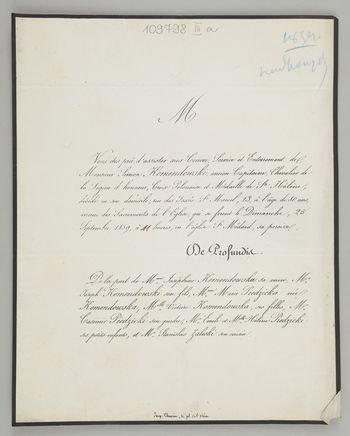 109798 III a
M
Vous êtes prié d'assister aux Convoi, Service et Enterrement de
Monsieur Simon Komondowski, ancien Capitaine, Chevalier de
la Légion d'honneur, Croix Polonaise et Médaille de Ste Hélène,
décédé en son domicile, rue des Fossés St Marcel, 13, à l'âge de 80 ans,
muni des Sacrements de l'Église, qui se feront le Dimanche, 25
Septembre 1859, à 11 heures, en l'église St Médard, sa paroisse,
De Profundis.
De la part de Mme Joséphine Komondowska sa veuve, Mr
Joseph Komondowski son fils, Mme Marie Piedzicka née
Komondowska, Melle Victoire Komondowska, ses filles, Mr
Casimir Piedzicki son gendre, Mr Emile et Melle Hélène Piedzicki
ses petits enfants, et Mr Stanislas Zaleski son cousin